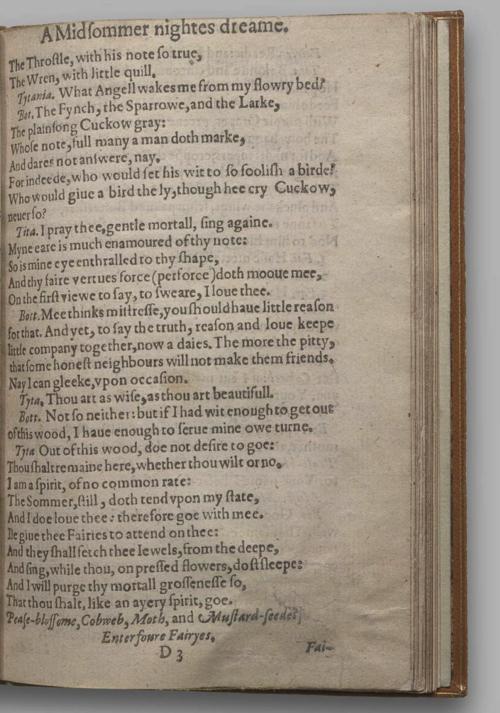 A Midsommer nightes dreame.
The Throstle, with his note so true,
The Wren, with little quill.
Tytania. What Angell wakes me from my flowry bed?
Bot. The Fynch, the Sparrowe, and the Larke,
The plainsong Cuckow gray:
Whose note, full many a man doth marke,
And dares not answere, nay.
For indeede, who would set his wit to so foolish a birde?
Who would giue a bird the ly, though hee cry Cuckow,
neuer so?
Tita. I pray thee, gentle mortall, sing againe.
Myne eare is much enamoured of thy note:
So is mine eye enthralled to thy shape,
And thy faire vertues force (perforce) doth mooue mee,
On the first viewe to say, to sweare, I loue thee.
Bott. Mee thinks mistresse, you should haue little reason
for that. And yet, to say the truth, reason and loue keepe
little company together, now a daies. The more the pitty,
that some honest neighbours will not make them friends.
Nay I can gleeke, vpon occasion.
Tyta. Thou art as wise, as thou art beautifull.
Bott. Not so neither: but if I had wit enough to get out
of this wood, I haue enough to serue mine owe turne.
Tyta Out of this wood, doe not desire to goe:
Thou shalt remaine here, whether thou wilt or no.
I am a spirit, of no common rate:
The Sommer, still, doth tend vpon my state,
And I doe loue thee: therefore goe with mee.
Ile giue thee Fairies to attend on thee:
And they shall fetch thee Iewels, from the deepe,
And sing, while thou, on pressed flowers, dost sleepe:
And I will purge thy mortall grossenesse so,
That thou shalt, like an ayery spirit, goe.
Pease-blossome, Cobweb, Moth, and Mustard-seede?
Enter foure Fairyes.
D 3
Fai-